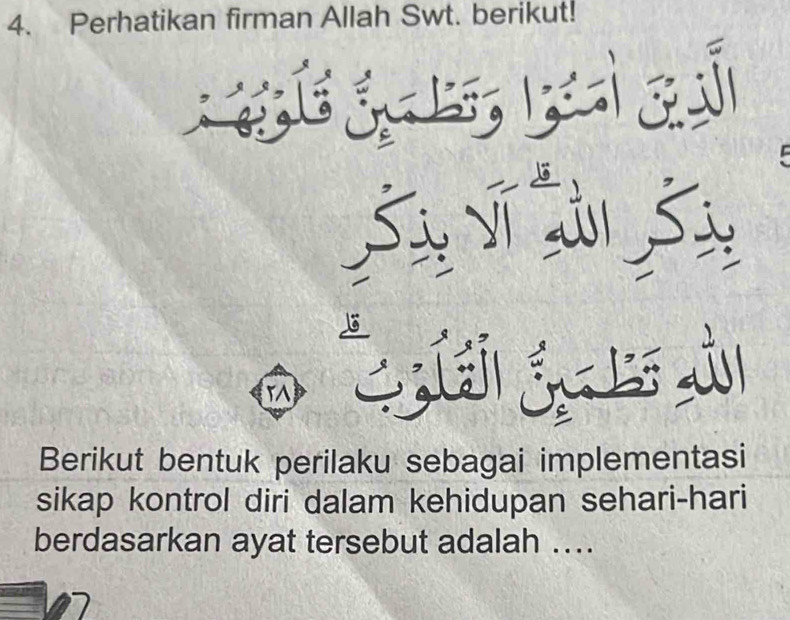 4. Perhatikan firman Allah Swt. berikut!
الَّذِيْنَ اٰمَنُوْا وَتَطْمَىِٕنُّ قُلُوْبُهُمْ
بِذِكْرِ اللّٰهِ ۗ اَلَا بِذِكْرِ
اللّٰهِ تَطْمَىِٕنُّ الْقُلُوْبُ ۗ ٢٨
Berikut bentuk perilaku sebagai implementasi
sikap kontrol diri dalam kehidupan sehari-hari
berdasarkan ayat tersebut adalah ....